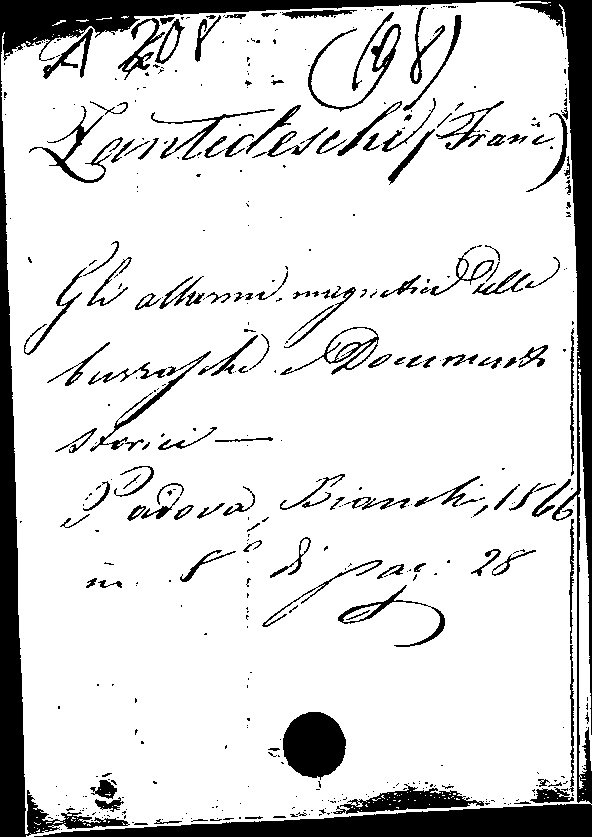 A 208 (98)
Zantedeschi (Franc.)
Gli allarmi magnetici delle
burrasche e Documenti
storici —
Padova, Bianchi, 1866
in 8° di pag: 28